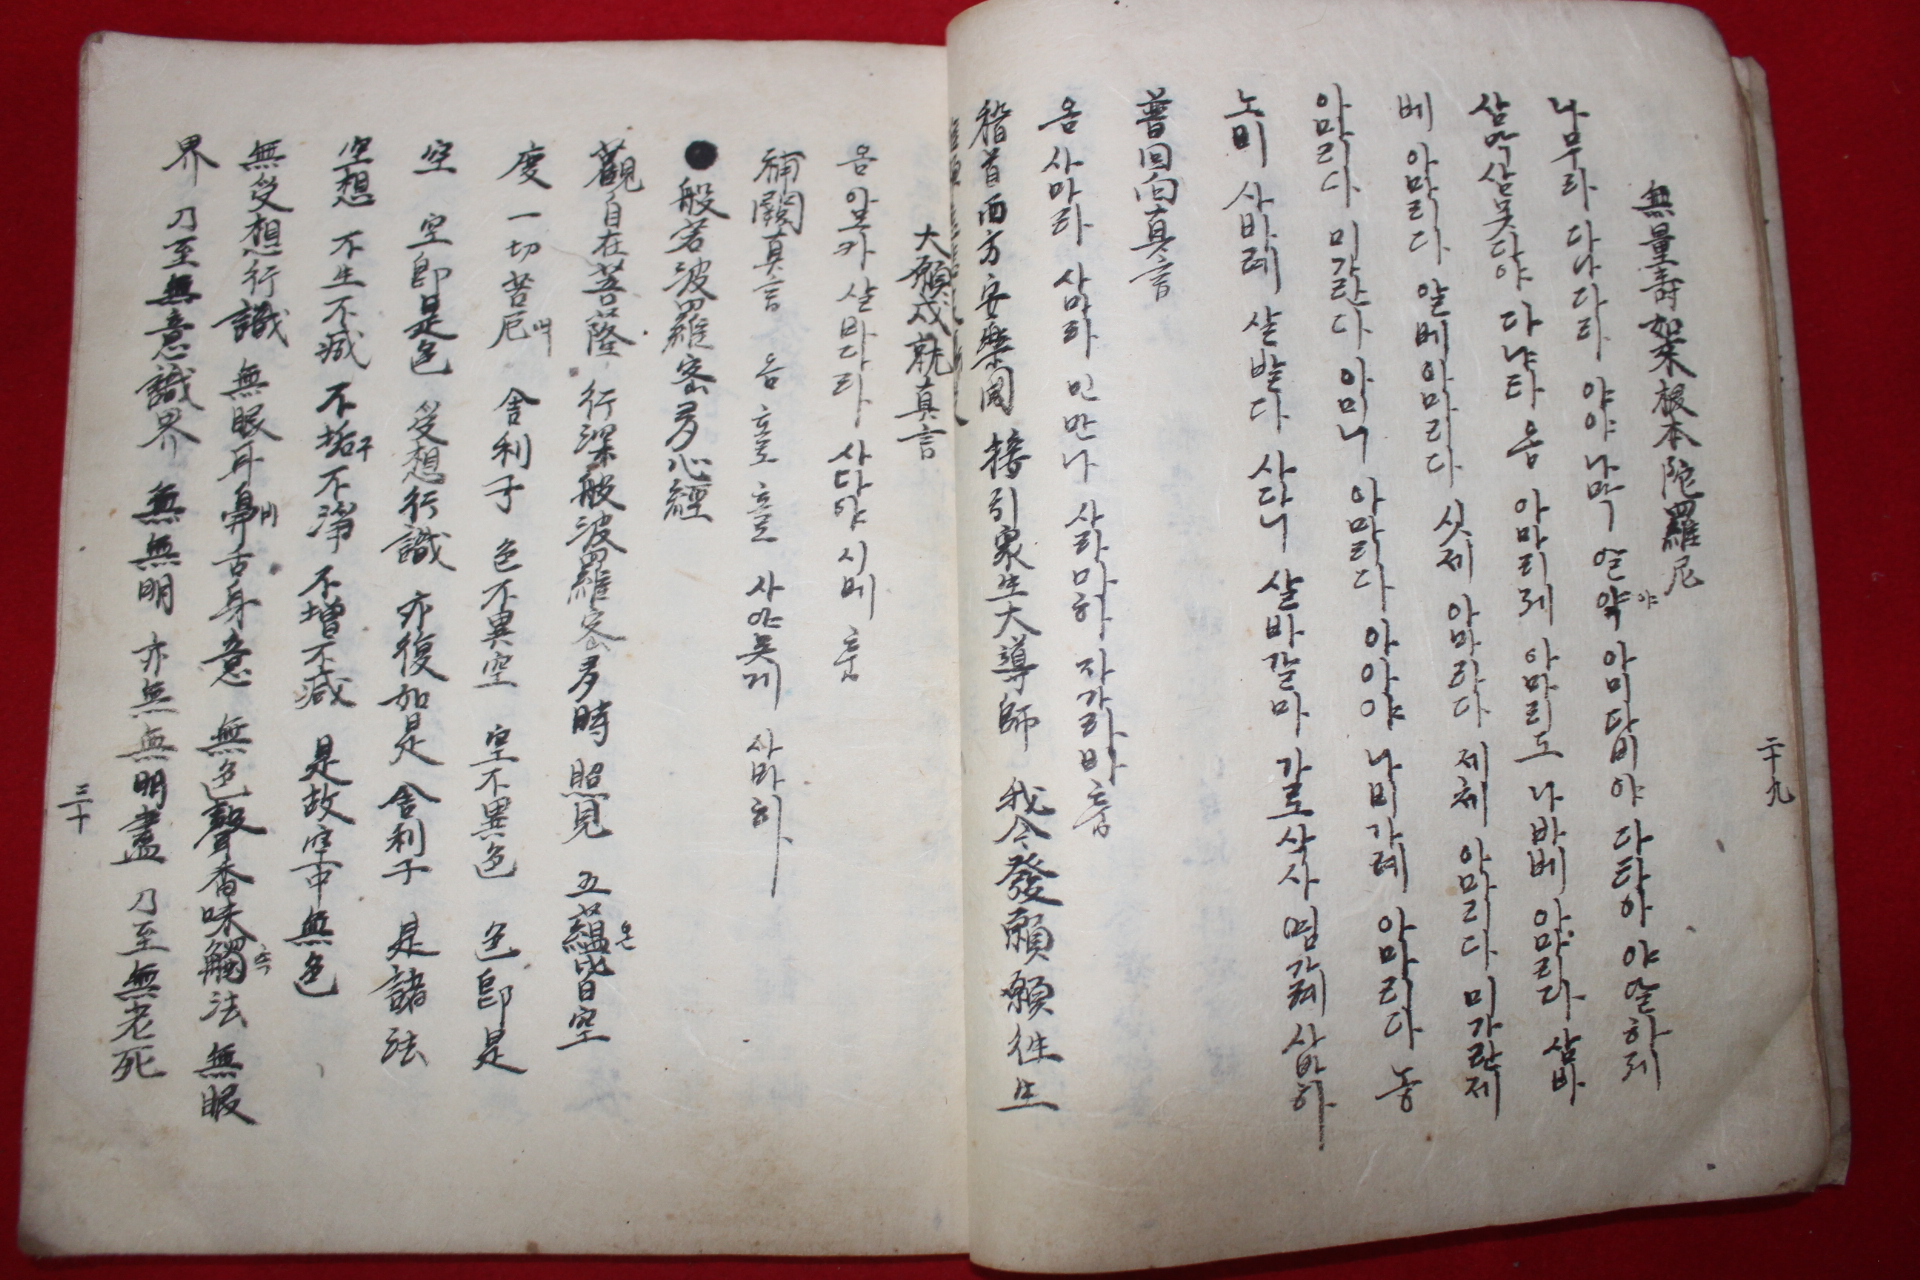 無量壽如來根本陀羅尼
나무라 다나다라 야야 나막 알약 야 아미다비야 다타아 야알하제
삼먁삼못다야 다냐타 옴 아마리제 아마리도 나바베 아마리다 삼바
베 아마리다 알베 아마리다 싯제 아마리다 제체 아마리다 미가란제
아마리다 미가란다 아미니 아마리다 아야야 나비가례 아마리다 농
노비 사바례 살발다 사다니 살바갈마 가로삭사 염가례 사바하
普回向真言
옴 사마라 사마라 민만나 사라마하 자가라바 훔
稽首西方安樂國 接引衆生大導師 我今發願願往生
二十九
大願成就真言
옴 아모카 살바다라 사다야 시베 훔
補闕真言 옴 호로 호로 사야못계 사바하
●般若波羅密多心經
觀自在菩薩 行深般波羅密多時 照見 五蘊온皆空
度 一切苦厄액 舍利子 色不異空 空不異色 色卽是
空 空卽是色 受想行識 亦復如是 舍利子 是諸法
空想 不生不滅 不垢구不淨 不增不减 是故空中無色
無受想行識 無眼耳鼻비舌身意 無色聲香味觸촉法 無眼
界 乃至無意識界 無無明 亦無無明盡 乃至無老死
三十